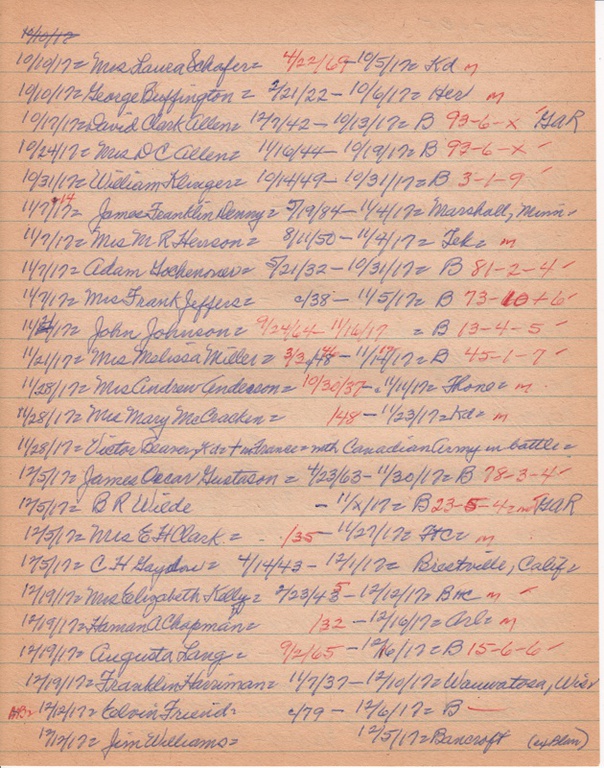 10/10/17
10/10/17= Mrs Laura Schafer= 4/22/69-10/5/17= Kd m
10/10/17= George Buffington= 2/21/22-10/6/17= Her m
10/17/17= David Clark Allen= 12/7/42-10/13/17= B 93-6-X ✓ GAR
10/24/17= Mrs D C Allen= 11/16/44-10/19/17= B 93-6-X ✓
10/31/17= William Klinger= 10/14/49-10/31/17= B 3-1-9 ✓
11/7/17= 14 James Franklin Denny= 5/19/84-11/4/17= Marshall, Minn
11/7/17= Mrs M R Henson= 8/11/50-11/4/17= Tek= m
11/7/17= Adam Gochenour= 5/21/32-10/31/17= B 81-2-4 ✓
11/7/17= Mrs Frank Jeffers= c/38-11/5/17= B 73-10+6 ✓
11/21/17= John Johnson= 9/24/64-11/16/17 = B 13-4-5 ✓
11/21/17= Mrs Melissa Miller= B 45-1-7 ✓
11/28/17= Mrs Andrew Anderson= 10/30/37- 11/14/17= m
11/28/17= Mrs Mary McCracken= /48-11/23/17= Kd= m
11/28/17= Victor Beaver, Kd= + in France= with Canadian Army in battle=
12/5/17= James Oscar Gustason= 4/23/63-11/30/17= B 78-3-4 ✓
12/5/17= B R Wiede -11/X/17= B 23-5-4= GAR
12/5/17= Mrs E H Clark= /35-11/27/17= HC= m
12/5/17= C H Gaydou= 4/14/43-12/1/17= Brestville, Calif=
12/19/17= Mrs Elizabeth Kelly= 2/23/43 5-12/12/17= Bnc m ✓
12/19/17= Haman A Chapman= /32-12/16/17= Arl= m
12/19/17= Augusta Lang= 9/2/65-12/16/17= B 15-6-6 ✓
12/19/17= Franklin Harriman= 11/7/37-12/10/17= Wauwatosa, Wis
AB= 12/12/17= Elvin Friend= c/79-12/6/17= B —
12/12/17= Jim Williams= 12/5/17= Bancroft (ex Blair)